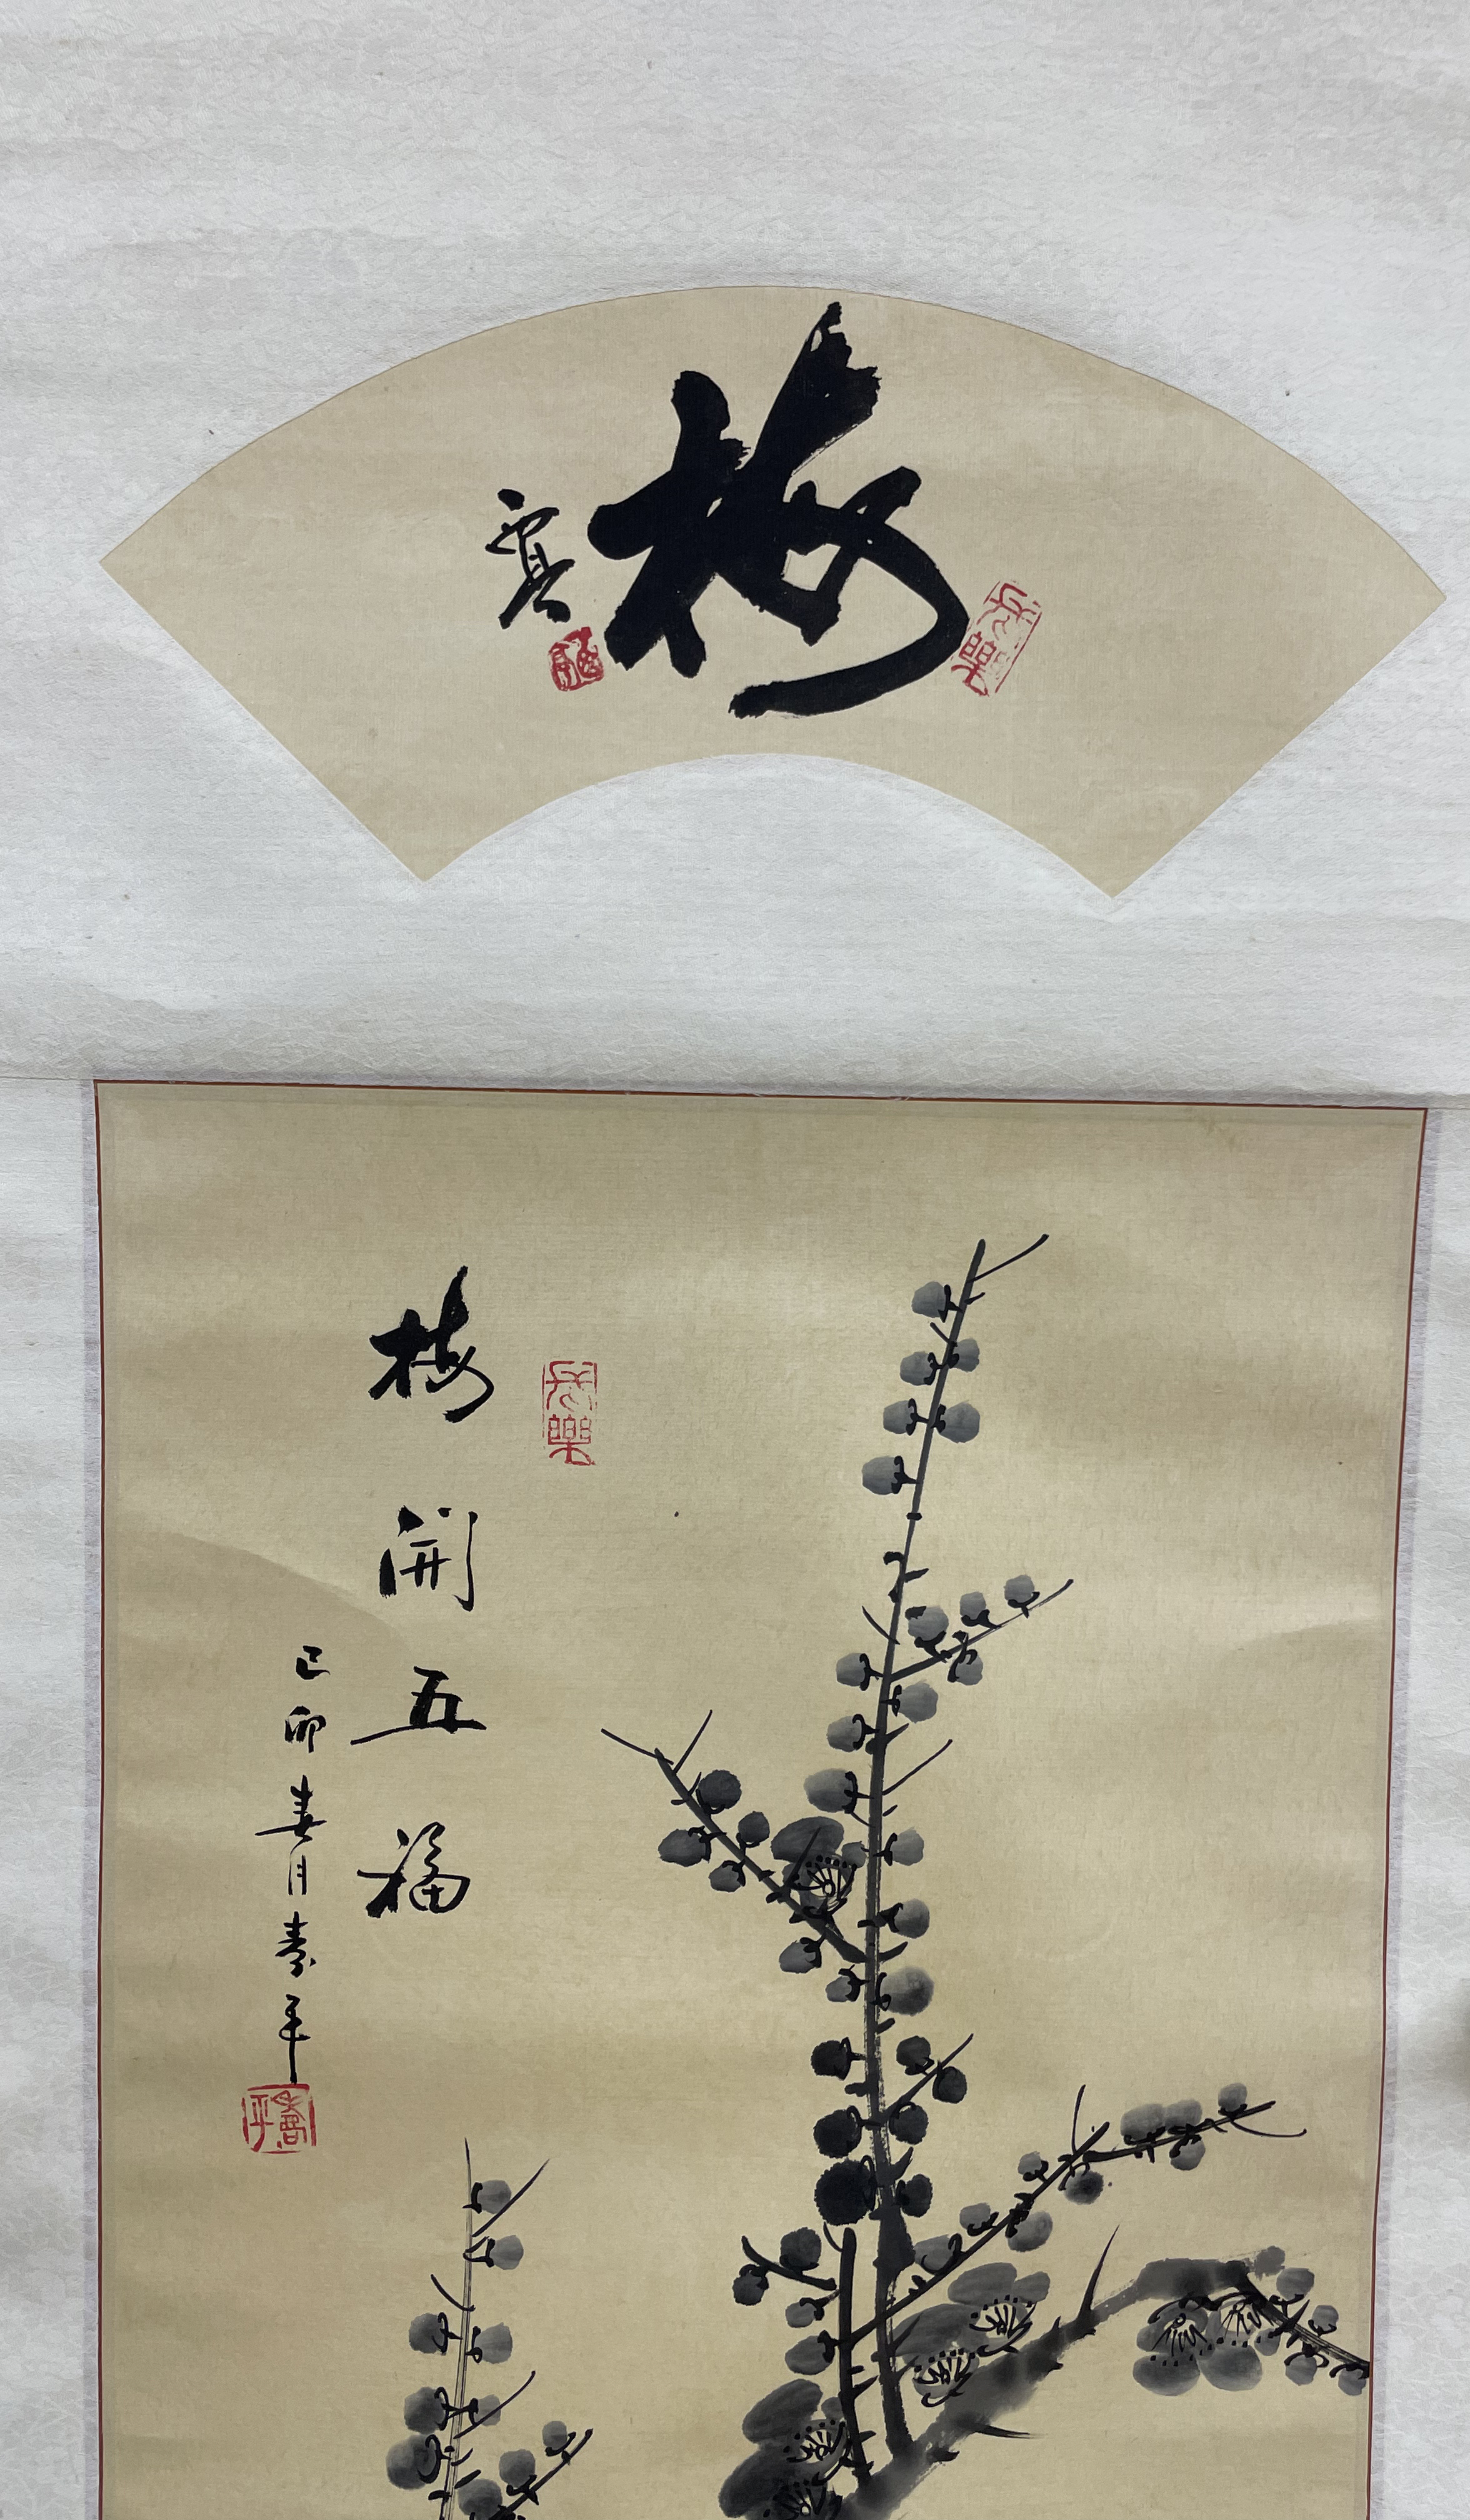 梅
梅開五福
己卯春月壽平